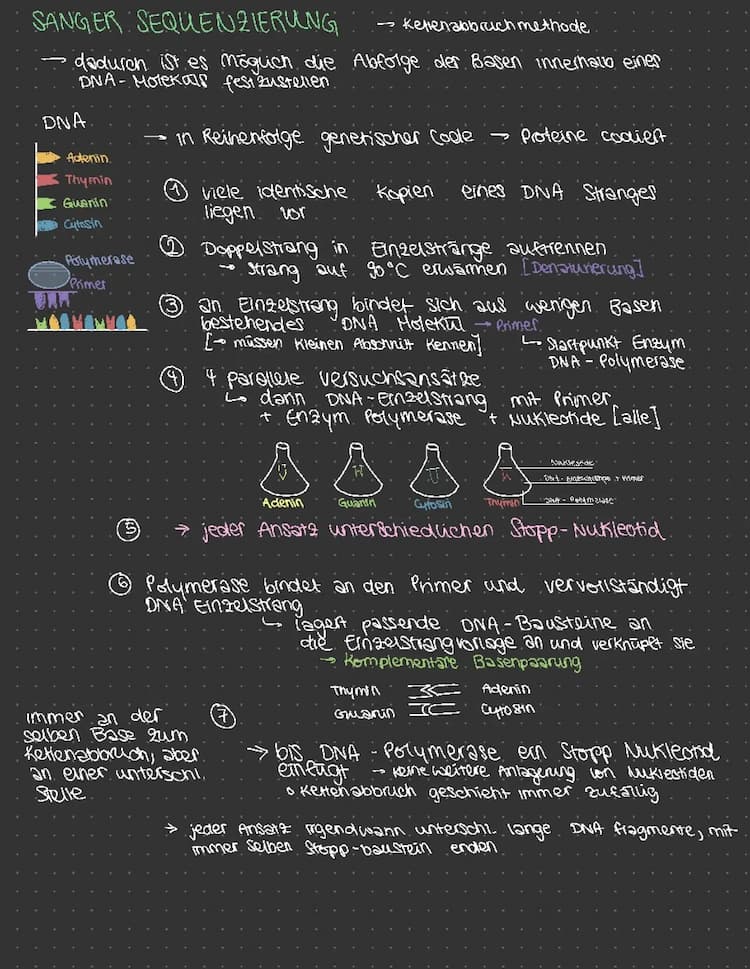 SANGER SEQUENZIERUNG → Kettenabbruchmethode
→ dadurch ist es möglich die Abfolge der Basen innerhalb eines
DNA-Moleküls festzustellen
DNA
→ in Reihenfolge genetischer Code → Proteine codiert
Adenin
Thymin
Guanin
Cytosin
① viele identische Kopien eines DNA Stranges
liegen vor
Polymerase
Primer
② Doppelstrang in Einzelstränge auftrennen
→ Strang auf 90°C erwärmen [Denaturierung]
③ an Einzelstrang bindet sich aus wenigen Basen
bestehendes DNA Molekül → Primer
[→ müssen kleinen Abschnitt kennen] ↳ Startpunkt Enzym
DNA-Polymerase
④ 4 parallele Versuchsansätze
↳ darin DNA-Einzelstrang mit Primer
+ Enzym Polymerase + Nukleotide [alle]
Nukleotide
DNA-Einzelstränge + Primer
DNA-Polymerase
Adenin Guanin Cytosin Thymin
⑤ → jeder Ansatz unterschiedlichen Stopp-Nukleotid
⑥ Polymerase bindet an den Primer und vervollständigt
DNA Einzelstrang
↳ lagert passende DNA-Bausteine an
die Einzelstrangvorlage an und verknüpft sie
→ Komplementäre Basenpaarung
Thymin Adenin
Guanin Cytosin
immer an der
selben Base zum
Kettenabbruch, aber
an einer unterschl.
Stelle
⑦
→ bis DNA-Polymerase ein Stopp Nukleotid
einfügt → keine weitere Anlagerung von Nukleotiden
° Kettenabbruch geschieht immer zufällig
→ jeder Ansatz irgendwann unterschl. lange DNA fragmente, mit
immer selben Stopp-baustein enden